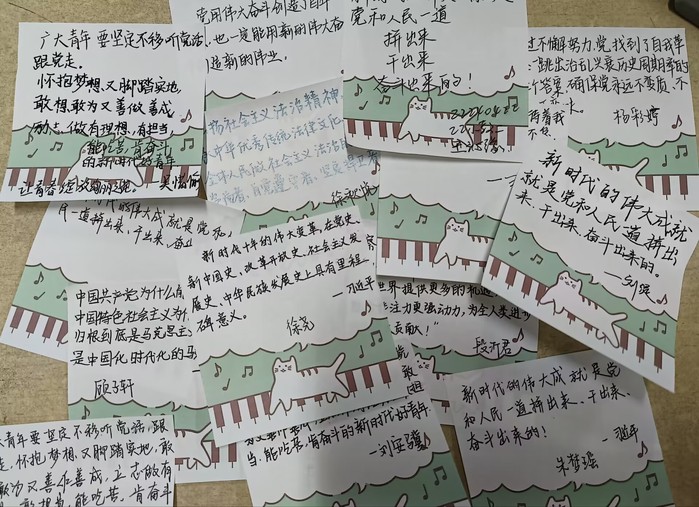 广大青年要坚定不移听党话
跟党走.
怀抱梦想又脚踏实地,
敢想敢为又善做善成,
励志做有理想、有担当
能吃苦、肯奋斗
的新时代好青年
党用伟大奋斗创造了百年
也一定能用新的伟大奋
造新的伟业.
党和人民一道
拼出来
干出来
奋斗出来的!
不懈努力,党找到了自我革
跳出治乱兴衰历史周期率的
确保党永远不变质、不
杨彩婷
扬社会主义法治精神、
中华优秀传统法律文化
新时代的伟大成就
就是党和人民一道拼出
来、干出来、奋斗出来的。
的伟大成就是党和
一道拼出来,干出来,奋斗
新时代十年的伟大变革,在党史、
新中国史、改革开放史、社会主义发
展史、中华民族发展史上具有里程
碑意义。
——习近平
徐尧
中国共产党为什么
中国特色社会主义为什
归根到底是马克思主
是中国化时代化的马
顾子轩
世界提供更多的机遇
注力更强动力,为全人类进
贡献!"
新时代的伟大成就是党
和人民一道拼出来、干出来、
奋斗出来的!
——习近平
朱梦瑶
当、能吃苦、肯奋斗的新时代好青年
青年要坚定不移听党话,跟
走,怀抱梦想又脚踏实地,敢
敢为又善作善成,立志做有
敢担当,能吃苦,肯奋斗